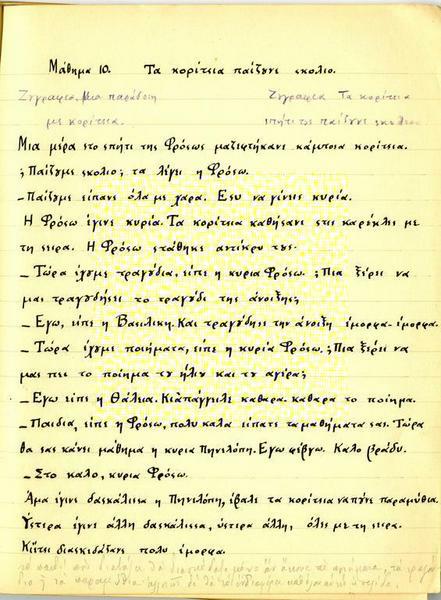 Μάθημα 10. Τα κορίτσια παίζυνε σκολιο.
Ζγραφιά. Μια παράδοση Ζγραφιά Τα κορίτσια
με κορίτσια. σπήτι της παίζυνε σκολειο
Μια μέρα στο σπήτι της Φρόσως μαζευτήκανε κάμποσα κορίτσια.
; Παίζυμε σκολιο; τα λέγει η Φρόσω.
– Παίζυμε είπανε όλα με χαρα. Εσυ να γίνεις κυρία.
Η Φρόσω έγινε κυρία. Τα κορίτσια καθήσανε στις καρέκλες με
τη σειρα. Η Φρόσω στάθηκε αντίκρυ τυς.
– Τώρα έχυμε τραγύδια, είπε η κυρια Φρόσω. ; Πια ξέρει να
μας τραγυδήσει το τραγύδι της άνοιξης;
– Εγω, είπε η Βασιλικη. Και τραγύδησε την άνοιξη έμορφα-έμορφα.
– Τώρα έχυμε ποιήματα, είπε η κυρία Φρόσω. ; Πια ξέρει να
μας πει το ποίημα τυ ήλιυ και τυ αγέρα;
– Εγω είπε η Θάλεια. Κι απάγγειλε καθαρα. καθαρα το ποίημα.
– Παιδια, είπε η Φρόσω, πολυ καλα είπατε τα μαθήματα σας. Τώρα
θα σας κάνει μάθημα η κυρια Πηνελόπη. Εγω φέβγω. Καλο βράδυ.
– Στο καλο, κυρια Φρόσω.
Άμα έγινε δασκάλισσα η Πηνελόπη, έβαλε τα κορίτσια να πύνε παραμύθια.
Ύστερα έγινε άλλη δασκάλισσα, ύστερα άλλη, όλες με τη σειρα.
Κ' έτσι διασκεδάζανε πολυ έμορφα.
το παιδί που διαβάζει θα διασκεδάσει μόνο αν άκουε τα ποιήματα, τα τραγύ-
δια ή τα παραμύθια